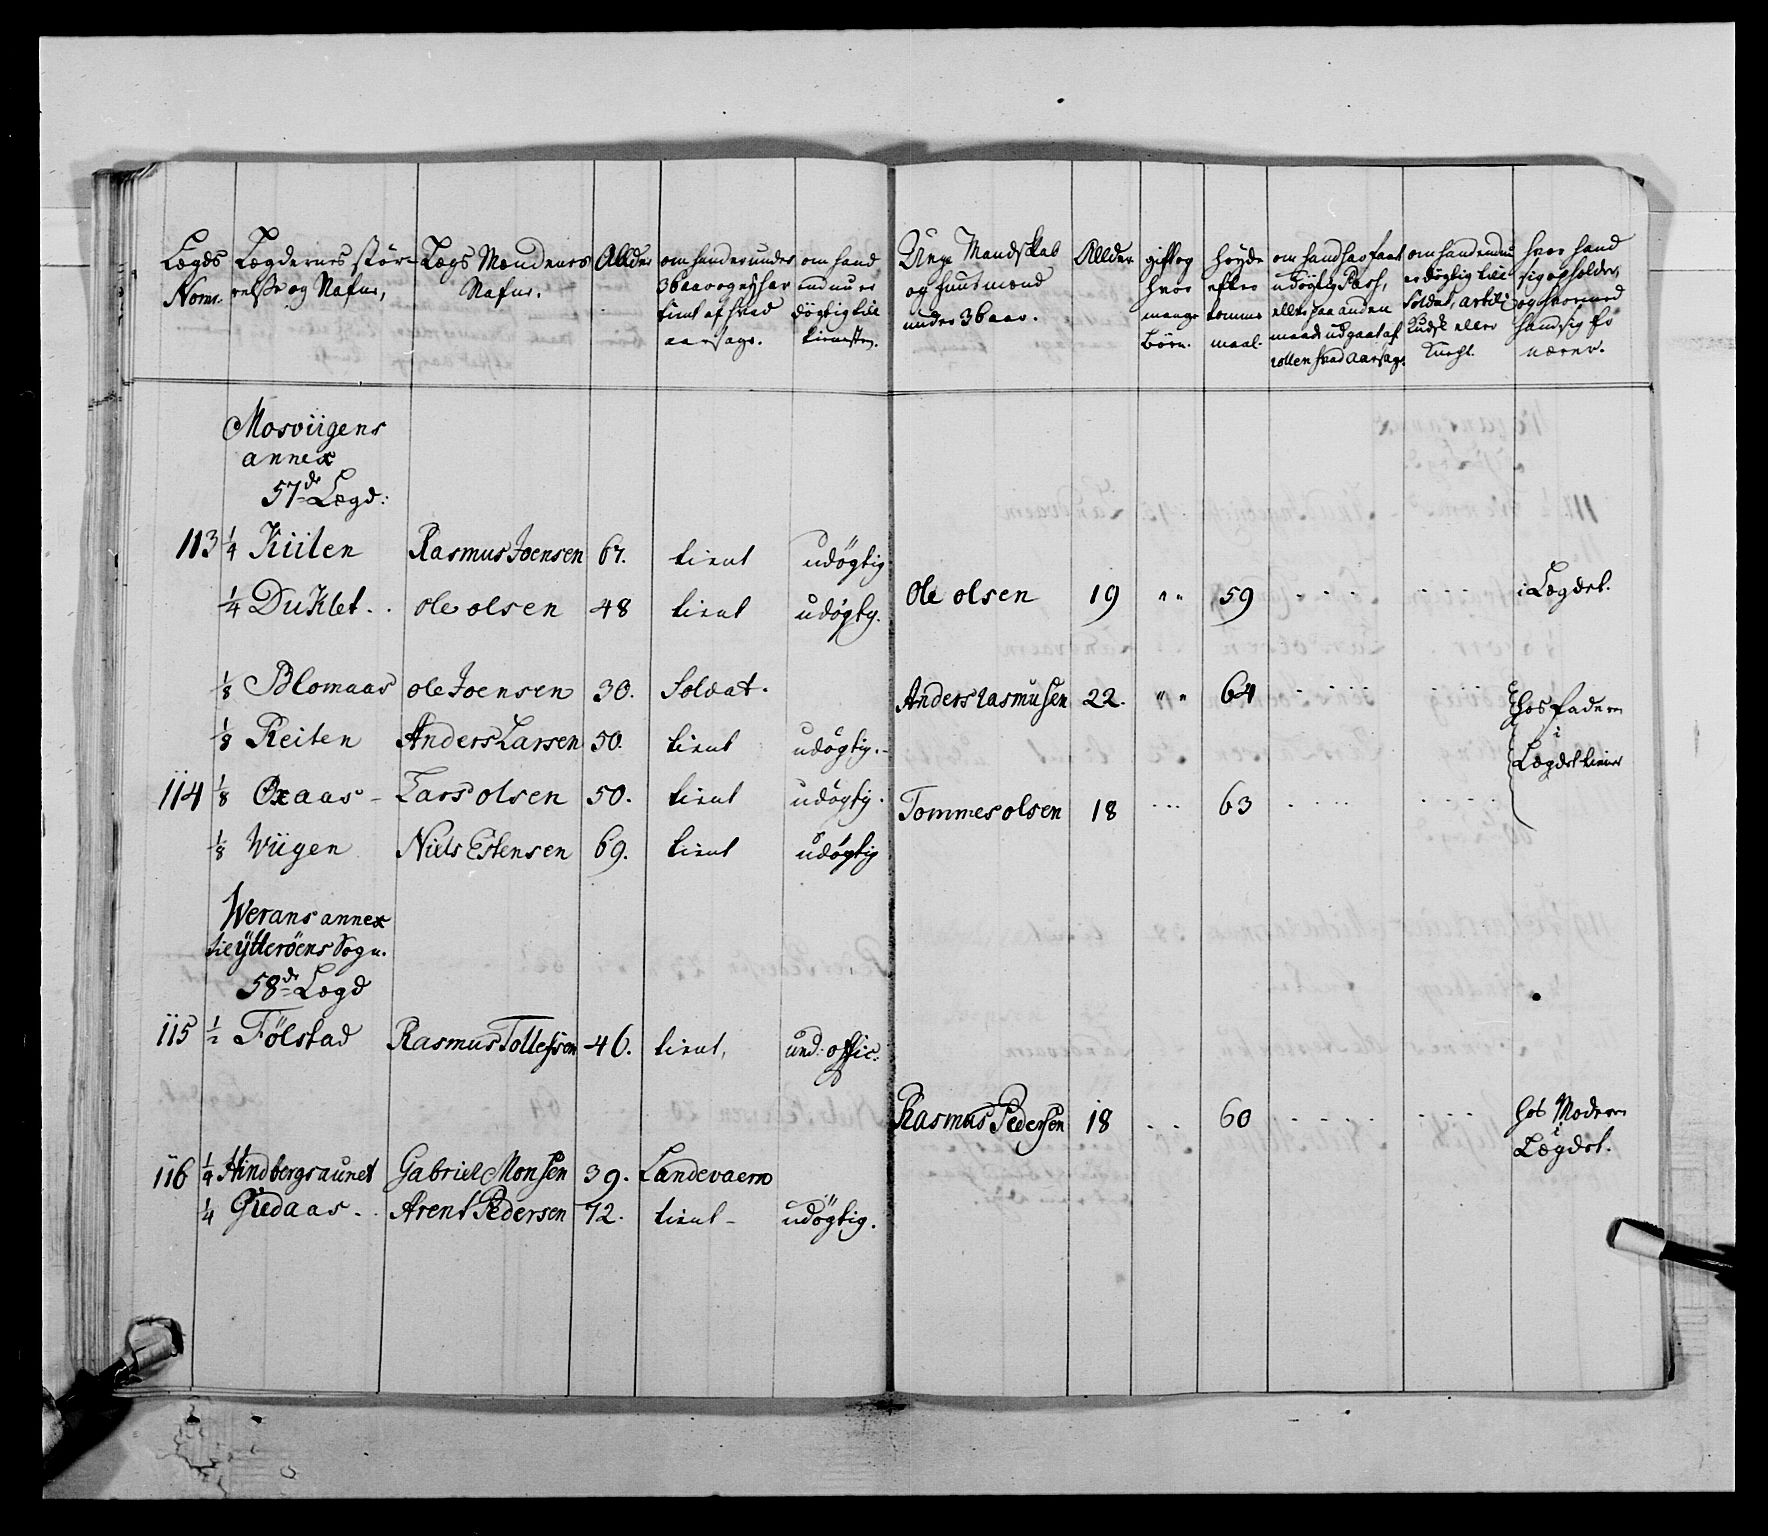 Lægds Nomr.
Lægdernes Större relse og Nafne,
Lægs Mændenes Nafne.
Allder
om hand er under 36 aar og ey har tient af hvad aarsage.
om hand endnu er dögtig till tienesten.
Unge Mandskab og huusmænd under 36 aar.
Allder
gift og hvor mange börn.
höyde efter tomme maal.
om hand har faaet udögtig Pass, eller paa anden maade udgaaet af rollen hvad aarsag.
om hand endnu er dögtig till Soldat, artill Kudsk eller Knegt.
hvor hand sig opholder, og hvormed hand sig er nærer.
Mosviigens
annex
57de Lægd:
113 1/4 Kiilen Rasmus Joensen 67. tient udögtig
1/4 Duklet. ole olsen 48 tient udögtg. Ole olsen 19 " " 59 i Lægdet.
1/8 Blomaas ole Joensen 30. Soldat. Anders rasmusen 22. " " 64 hos faderen
1/8 Reiten Anders Larsen 50. tient udögtig. i Lægdet tiener
114 1/8 Oxaas Lars olsen 50. tient udögtig. Tommes olsen 18 63
1/8 Wiigen Niels Estensen 69. tient udögtig
Werans annex
til ytteröens Sogn.
58de Lægd
115 1/2 Fölstad Rasmus Tollefsen 46. tient, und: offic:
Rasmus Pedersen 18 60 hos Moderen i Lægdet.
116 1/4 Hindbergsaunet Gabriel Monsen 39. Landevaern
1/4 Giedaas. Arent Pedersen 72. tient udögtig.